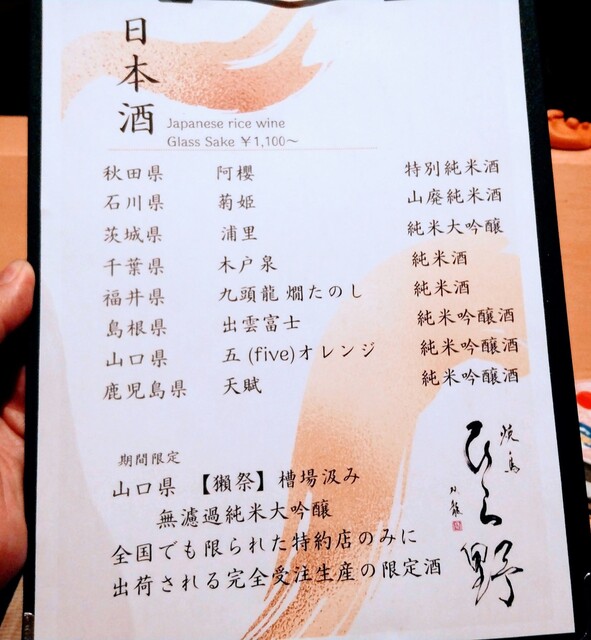 日本酒
Japanese rice wine
Glass Sake ¥1,100〜
秋田県 阿櫻 特別純米酒
石川県 菊姫 山廃純米酒
茨城県 浦里 純米大吟醸
千葉県 木戸泉 純米酒
福井県 九頭龍 燗たのし 純米酒
島根県 出雲富士 純米吟醸酒
山口県 五 (five)オレンジ 純米吟醸酒
鹿児島県 天賦 純米吟醸酒
期間限定
山口県 【獺祭】槽場汲み
無濾過純米大吟醸
全国でも限られた特約店のみに
出荷される完全受注生産の限定酒
焼鳥
ひら野